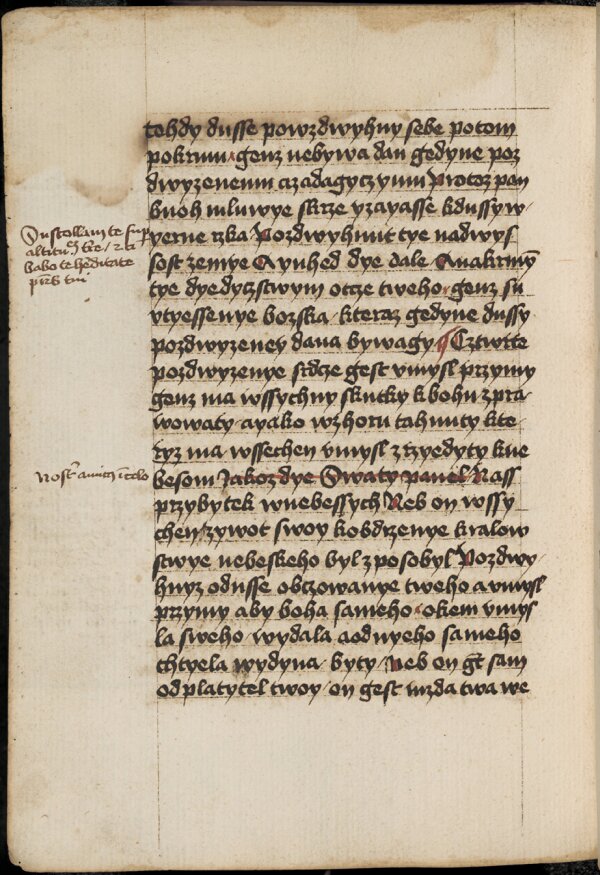 tehdy dusse powzdwyhny sebe potom
pokrmu genz nebywa dan gedyne poz
dwyzenemu azadagyczymu Protoz pan
buoh mluwye skrze yzayasse kdussy w
yerne rzka Pozdwyhnut tye nadwys
sost zemye Aynhed dye dale Anakrmym
tye dyedyczstwym otcze tweho genz su
vtyessenye bozska kteraz gedyne dussy
pozdwyzeney dana bywagy Cztwrte
pozdwyzenye srdcze gest vmysl przymy
genz ma wssychny skutky k bohu zpra
wowaty ayako wzhoru tahnuty kte
ryz ma wssechen vmysl zrzyedyty kne
besom Jakoz dye Swaty pawel Nass
przybytek wnebessych Neb on wssy
chen zywot swoy kobdrzenye kralow
stwye nebeskeho byl zposobyl Pozdwy
hnyz odusse obczowanye tweho avmysl
przymy aby boha sameho okem vmys
la sweho wydala aod nyeho sameho
chtyela wydyna byty Neb on gt sam
odplatytel twoy on gest mzda twa we
Sustollam te sup
altitud t're / et ci
babo te hereditate
pris tui